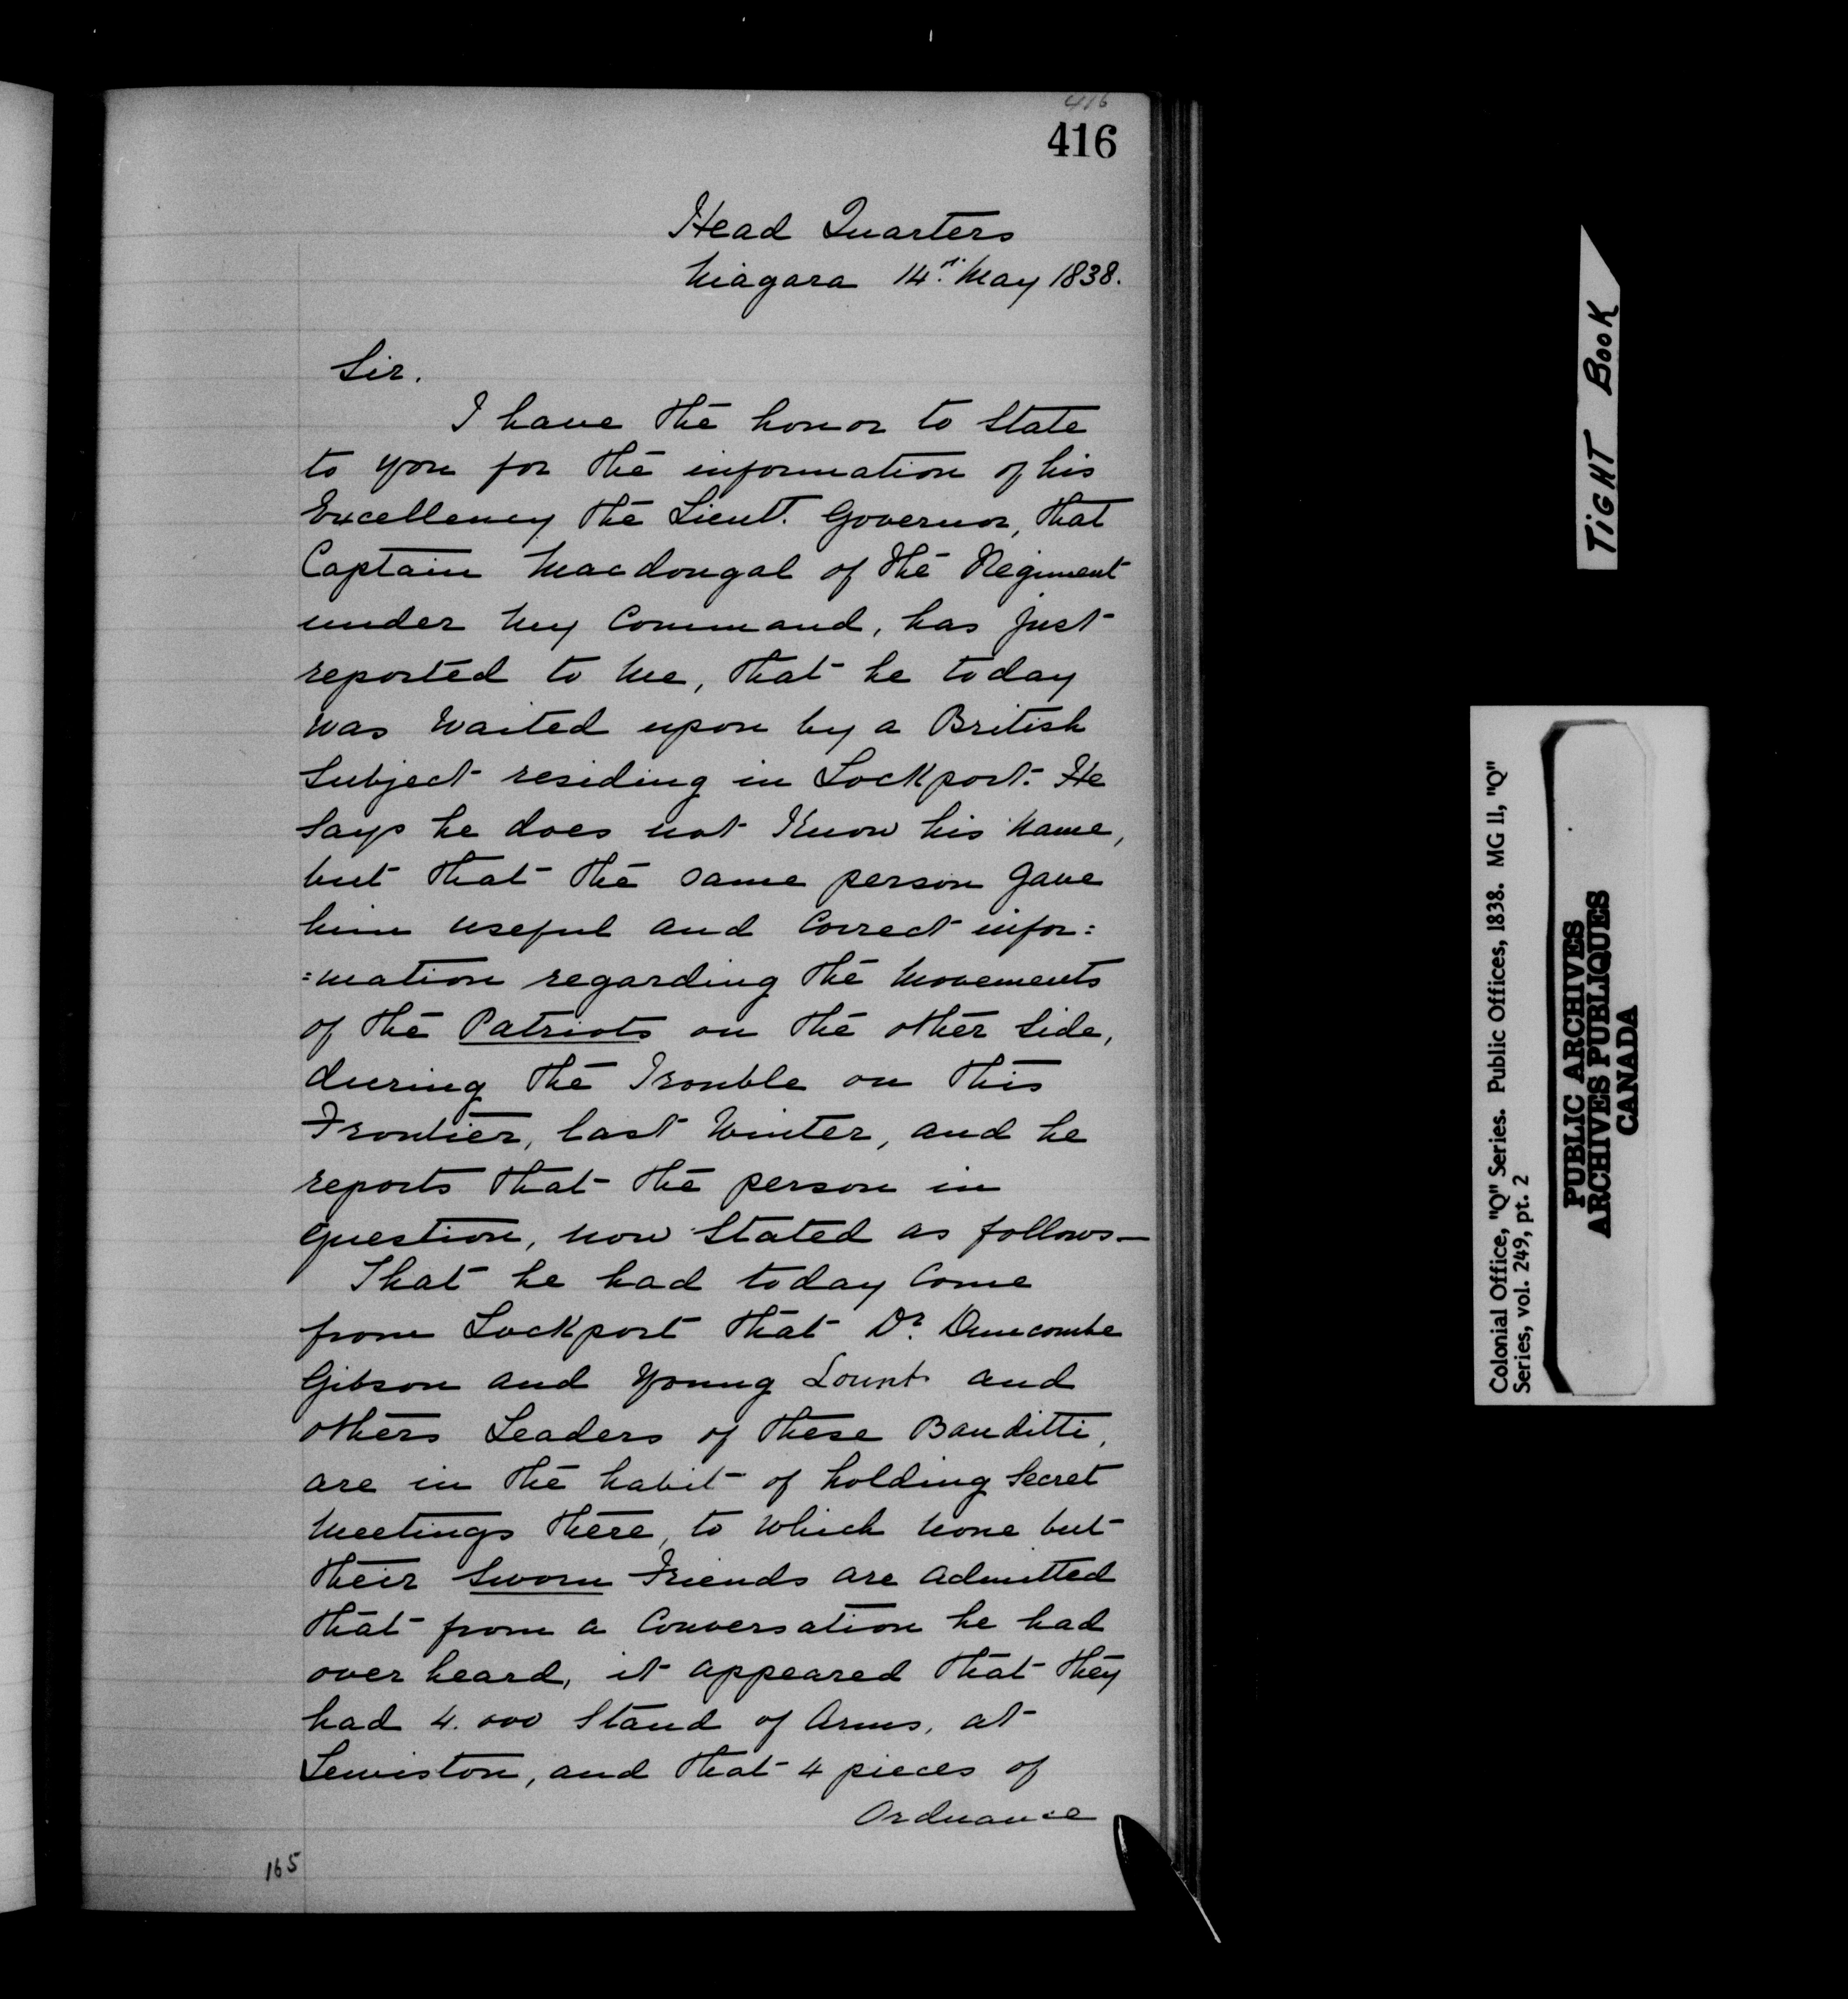 416
416
Head Quarters
Niagara 14th May 1838.
Sir.
I have the honor to State
to you for the information of his
Excellency the Lieut. Governor, that
Captain Macdougal of the Regiment
under my Command, has just
reported to me, that he today
was waited upon by a British
Subject residing in Lockport. He
says he does not Know his name,
but that the same person gave
him useful and Correct infor:
=mation regarding the movements
of the Patriots on the other side,
during the Trouble on this
Frontier, last Winter, and he
reports that the person in
question, now Stated as follows—
That he had today Come
from Lockport that Dr. Duncombe
Gibson and Young Lount and
others Leaders of these Banditti,
are in the habit of holding Secret
Meetings there, to which none but
their Sworn Friends are admitted
that from a Conversation he had
over heard, it appeared that they
had 4.000 Stand of Arms, at
Lewiston, and that 4 pieces of
Ordnance
165
TIGHT BOOK
Colonial Office, "Q" Series. Public Offices, 1838. MG 11, "Q"
Series, vol. 249, pt. 2
PUBLIC ARCHIVES
ARCHIVES PUBLIQUES
CANADA